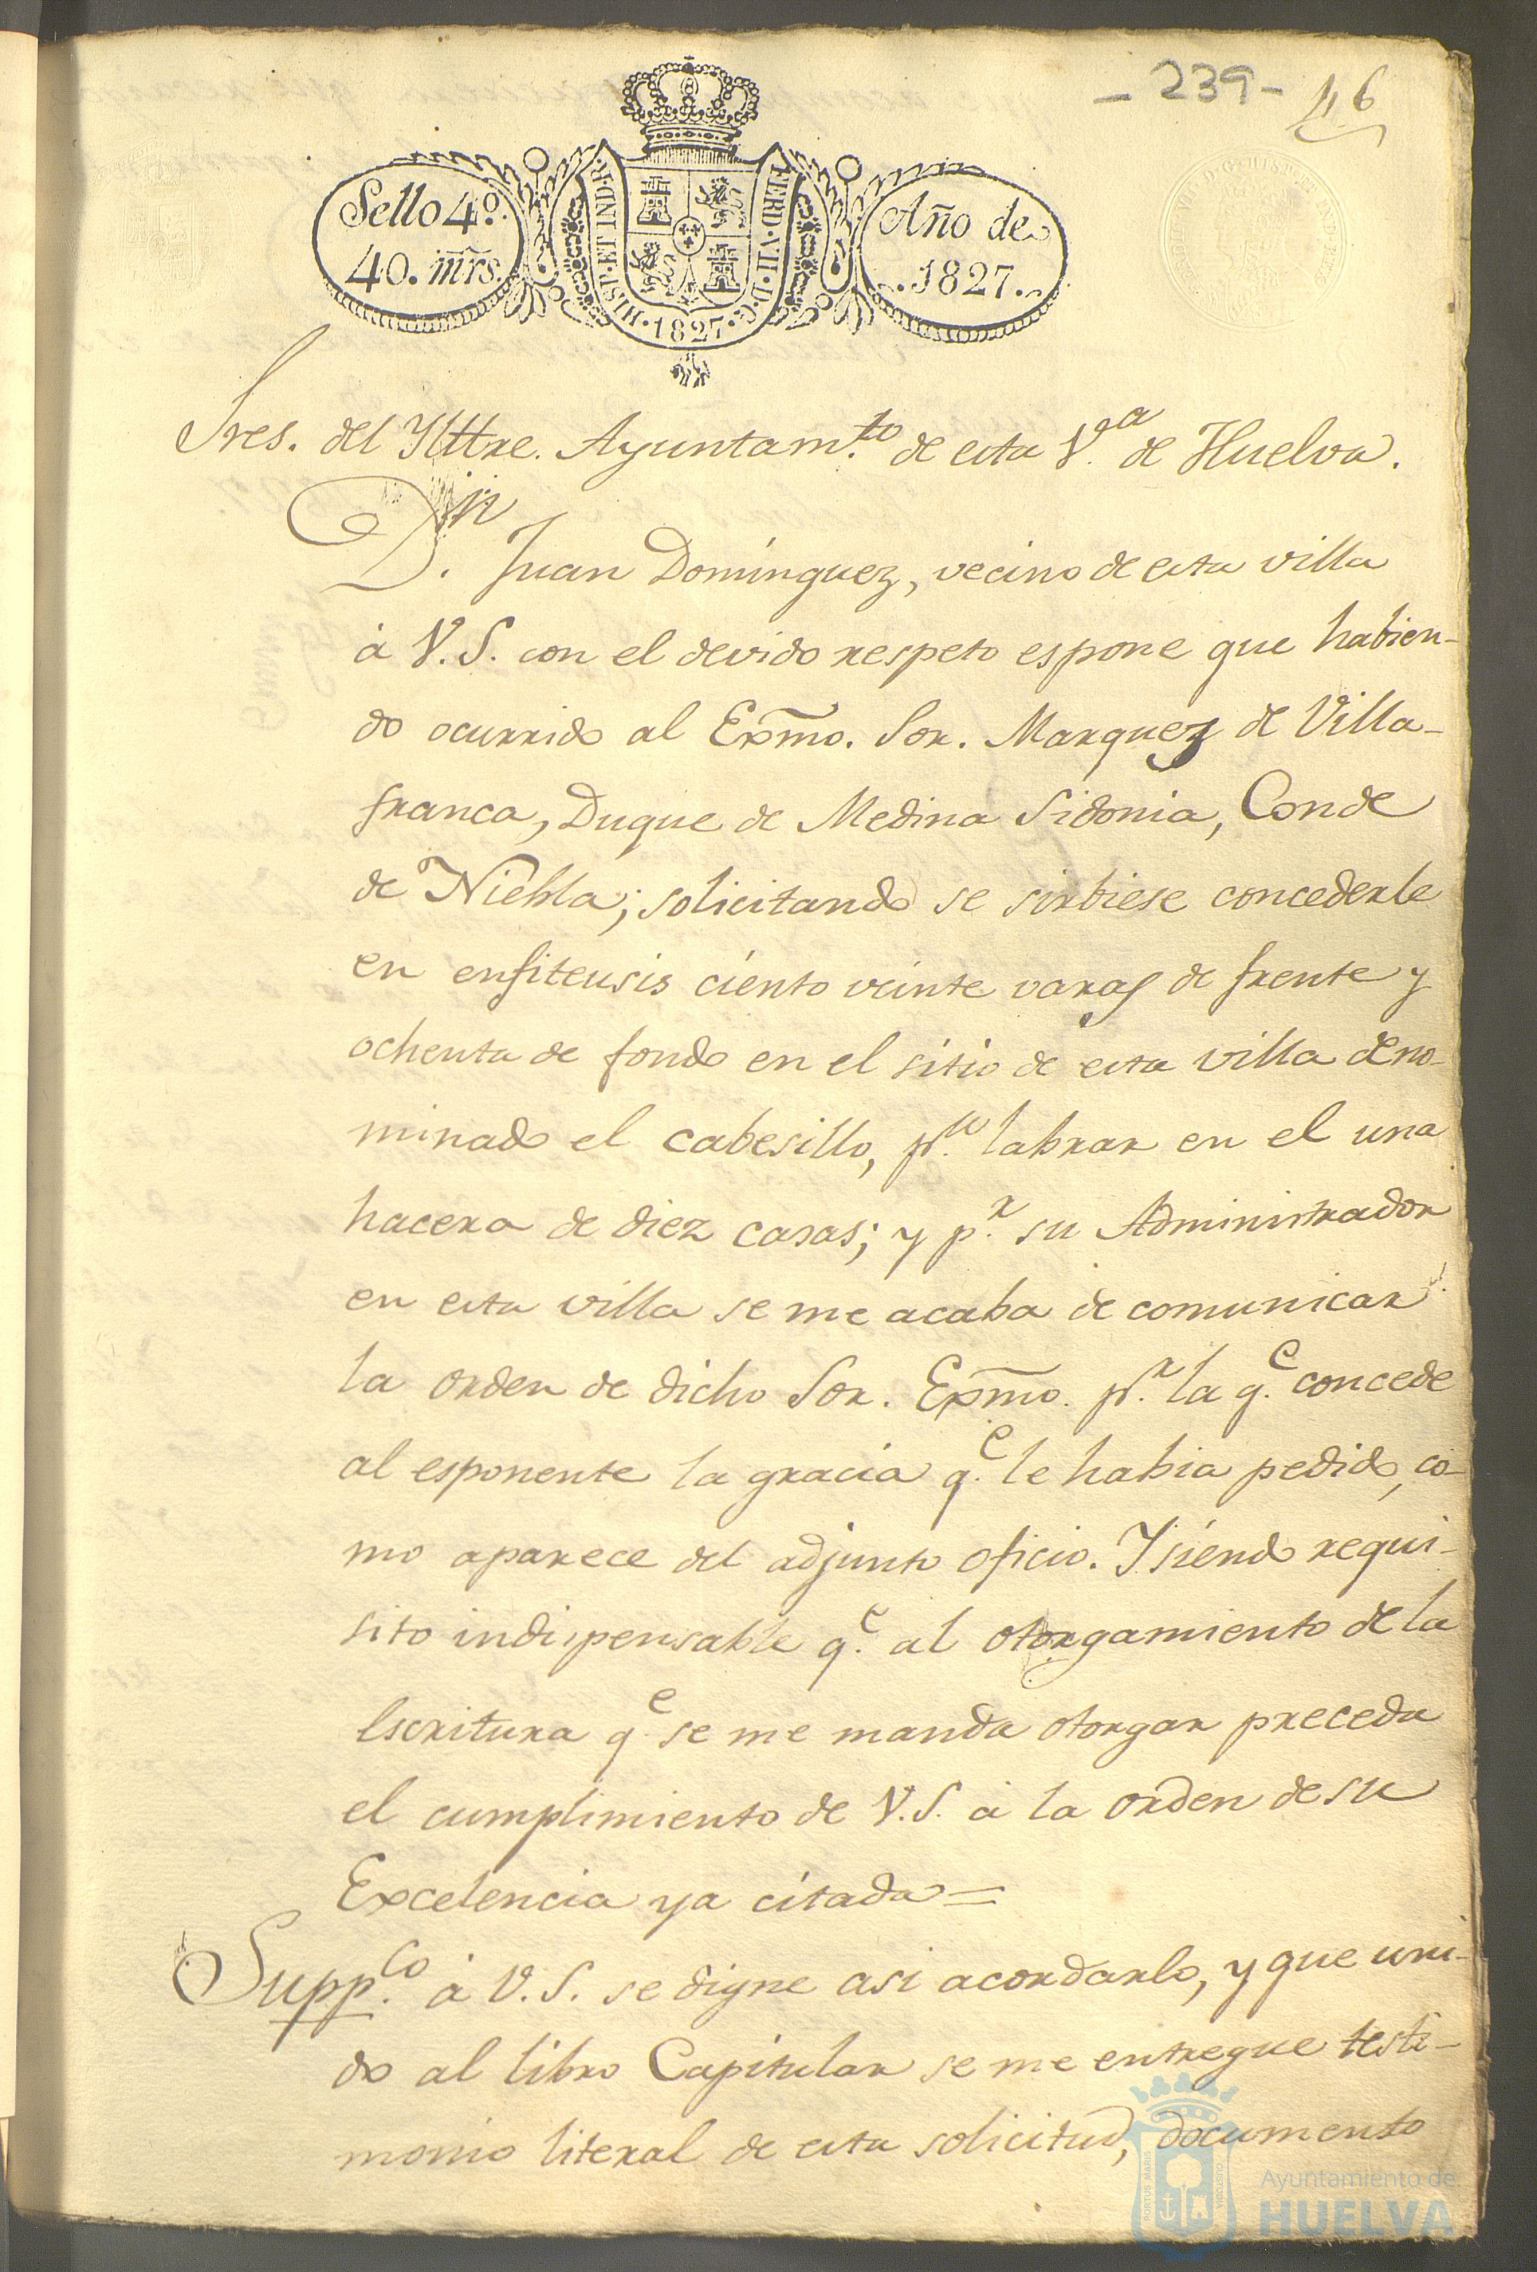 - 239 - 46
Sello 4º.
40. mrs.
HISP. ET IND. R.
FERD. VII. D. G.
· 1827 ·
Año de
. 1827 .
Sres. del Ylttre. Ayuntam.to de esta V.a de Huelva.
D.n Juan Domínguez, vecino de esta villa
à V. S. con el devido respeto espone que habien-
do ocurrido al Exmo. Sor. Marquez de Villa-
franca, Duque de Medina Sidonia, Conde
de Niebla; solicitando se sirbiese concederle
en enfiteusis ciento veinte varas de frente y
ochenta de fondo en el sitio de esta villa deno-
minado el cabesillo, p.a labrar en el una
hacera de diez casas; y p.r su Administrador
en esta villa se me acaba de comunicar
la orden de dicho Sor. Exmo. p.r la q.e concede
al esponente la gracia q.e le habia pedido, co-
mo aparece del adjunto oficio. Y siendo requi-
sito indispensable q.e al otorgamiento de la
Escritura q.e se me manda otorgar preceda
el cumplimiento de V. S. à la orden de su
Excelencia ya citada =
Supp.co à V. S. se digne asi acordarlo, y que uni-
do al libro Capitular se me entregue testi-
monio literal de esta solicitud, documento
Ayuntamiento de
HUELVA